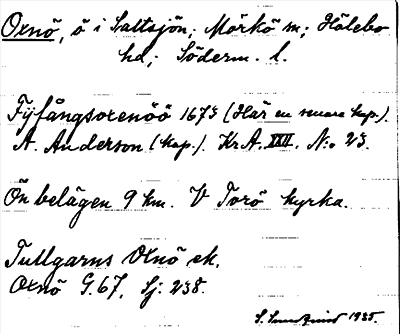 Oxnö, ö i Saltsjön; Mörkö sn; Hölebo
hd; Söderm. l.
Fyfångsoxenöö 1673 (Här en senare kop.).
A. Anderson (kop.). Kr A. XXII. N:o 23.
Ön belägen 9 km. V Torö kyrka.
Tullgarns Oxnö ek.
Oxnö G. 67, Sj: 238.
S. 1935